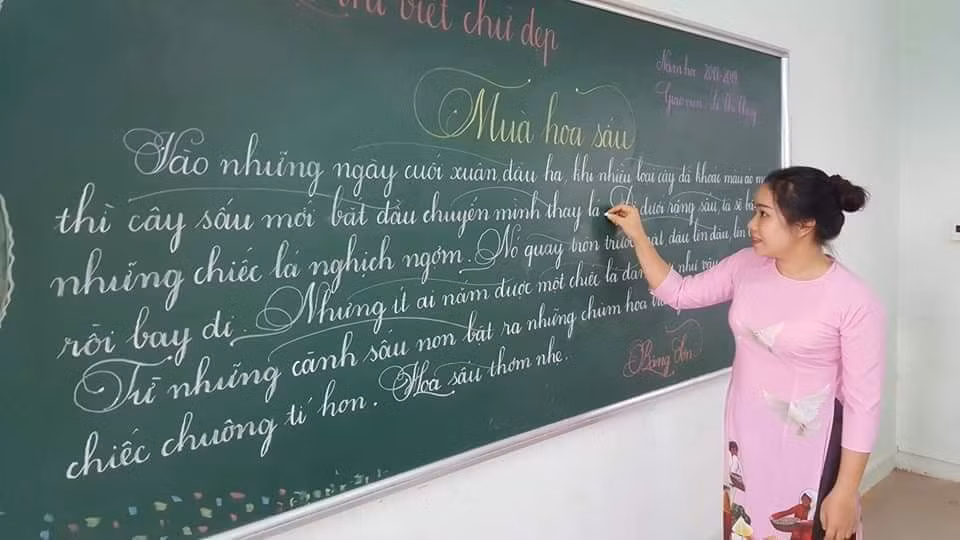 thi viết chữ đẹp
Năm học 2018-2019
Giáo viên:
Mùa hoa sấu
Vào những ngày cuối xuân, đầu hạ, khi nhiều loài cây đã khoác màu áo m
thì cây sấu mới bắt đầu chuyển mình thay lá. Đi dưới rặng sấu, ta sẽ
những chiếc lá nghịch ngợm. Nó quay tròn trước mặt, đậu lên đầu, lên
rồi bay đi. Nhưng ít ai nắm được một chiếc lá đang như vậy
Từ những cành sấu non bật ra những chùm hoa
chiếc chuông tí hon. Hoa sấu thơm nhẹ.
Băng Sơn